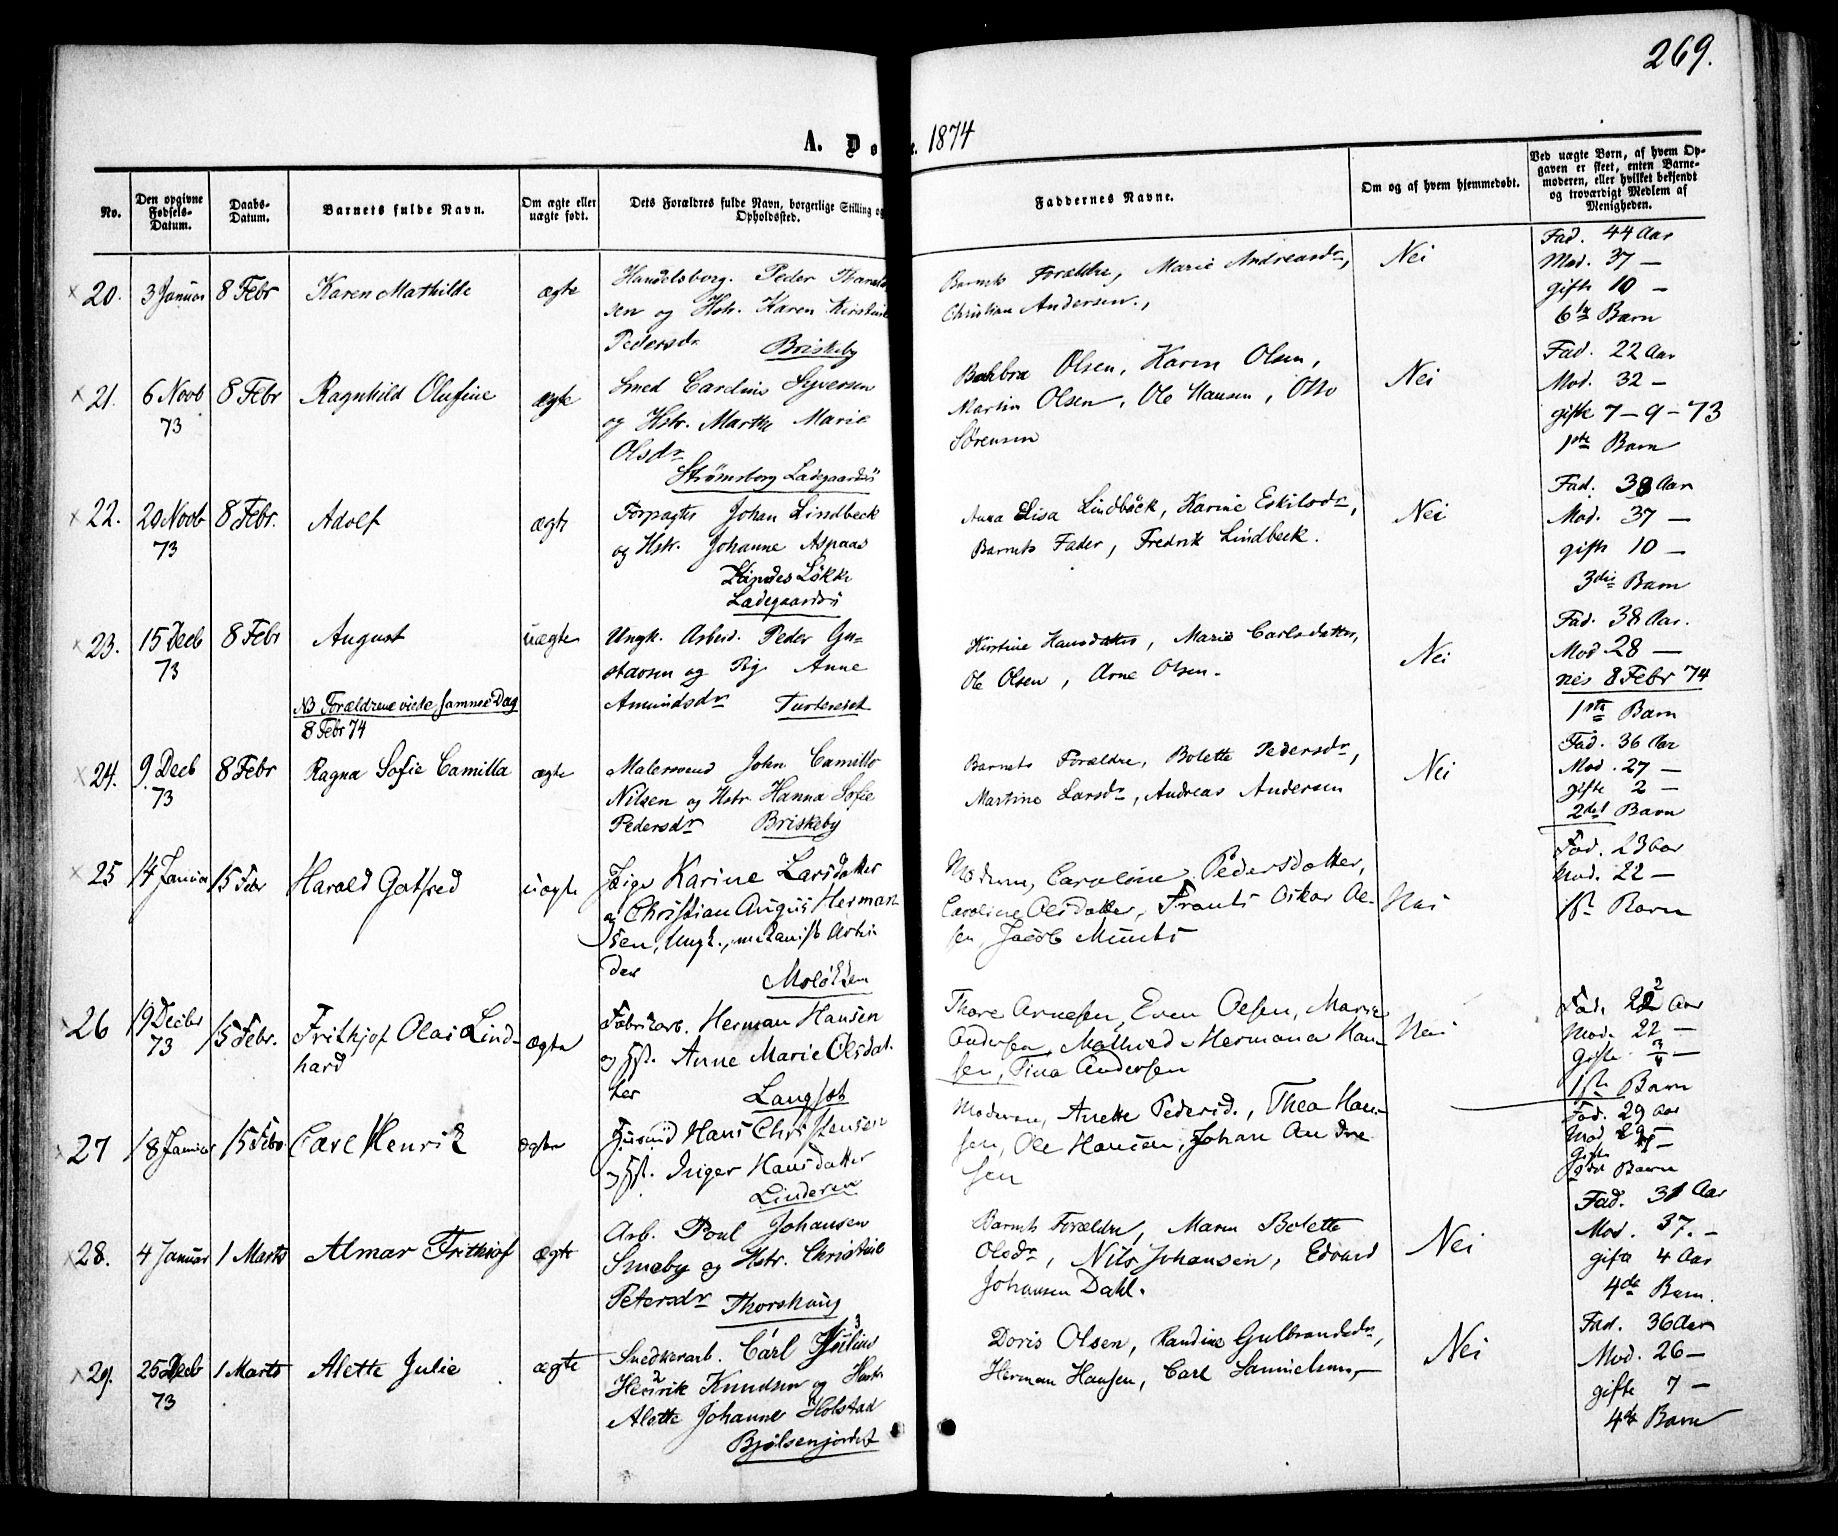 269.
A. Dø... 1874
No.
Den opgivne Fødsels-Datum.
Daabs-Datum.
Barnets fulde Navn.
Om ægte eller uægte født.
Dets Forældres fulde Navn, borgerlige Stilling og Opholdssted.
Faddernes Navne.
Om og af hvem hjemmedøbt.
Ved uægte Børn, af hvem Opgaven er skeet, enten Barnemoderen, eller hvilket bekjendt og troværdigt Medlem af Menigheden.
20. 3 Januar 8 Febr Karen Mathilde ægte
Handelsborg. Peder
sen og Hstr. Karen Kirstine
Pedersdr Briskeby
Barnets Forældre, Marie Andreasdr,
Christian Andersen.,
Nei
Fad. 44 Aar
Mod. 37 —
gifte 10 —
6te Barn
21. 6 Novb 73 8 Febr Ragnhild Olufine ægte
Smed Carelius Syversen
og Hstr. Marthe Marie
Olsdr
Strømsborg Ladegaardsø
Olsen, Karen Olsen,
Martin Olsen, Ole Hansen, Otto
Sørensen
Nei
Fad. 22 Aar
Mod. 32 —
gifte 7 – 9 – 73
1ste Barn
22. 20 Novb 73 8 Febr. Adolf ægte
Forpagter Johan Lindbeck
og Hstr. Johanne Aspaas
Løkke
Ladegaardsø
Anna Lisa Lindbäck, Karine Eskilsdr,
Barnets Fader, Fredrik Lindbeck.
Nei
Fad. 38 Aar
Mod. 37 —
gifte 10 —
3die Barn
23. 15 Decb 73 8 Febr August uægte
NB Forældrene viede samme Dag
8 Febr 74
Ungk. Arbeid. Peder Gu-
stavsen og Pig. Anne
Amundsdr Tuftereiet
Kirstine Hansdatter, Marie Carlsdatter,
Ole Olsen, Arne Olsen.
Nei
Fad. 38 Aar.
Mod 28 —
8 Febr 74
1ste Barn
24. 9 Decb 73 8 Febr Ragna Sofie Camilla ægte
Malersvend John Camillo
Nilsen og Hstr. Hanna Sofie
Pedersdr Briskeby
Barnets Forældre, Bolette Pedersdr,
Martine Larsdr, Andreas Andersen
Nei
Fad. 36 Aar
Mod. 27 —
gifte 2 —
2det Barn
25 14 Januar 15 Febr Harald Gotfred uægte
Pige Karine Larsdatter
og Christian August Herman
sen, Ungk., mekanisk Arbei
der Moløkken
Moderen, Caroline Pedersdatter,
Caroline Olsdatter, Frants Oskar Ol-
sen, Jacob Munts
Nei
Fad. 23 Aar
Mod. 22 —
1ste Barn
26 19 Decbr 73 15 Febr. Frithjof Olai Lind-
hard ægte
Fabrikarb. Herman Hansen
og Hst. Anne Marie Olsdat-
ter Langset
Thore Arnesen, Even Olsen, Marie
Andersen, Mathied Hermana Han-
sen, Tina Andersen
Nei
Fad. 22 Aar
Mod. 22 —
Gifte 3/4 —
1ste Barn
27 18 Januar 15 Febr Carl Henrik ægte
Husmd Hans Christensen
og Hst. Inger Hansdatter
Linderen
Moderen, Anette Pedersd., Thea Han-
sen, Ole Hansen, Johan Andre
sen
Fad. 29 Aar
Mod. 29 —
Gifte
2det Barn
28. 4 Januar 1 Marts Almar Frithiof ægte
Arb. Poul Johansen
Smeby og Hstr. Christine
Petersdr Thorshaug
Barnets Forældre, Maren Bolette
Olsdr, Nils Johansen, Edvard
Johansen Dahl.
Nei
Fad. 31 Aar
Mod. 37. –
gifte 4 Aar
4de Barn.
29. 25 Decb 73 1 Marts Alette Julie ægte
Snedkerarb. Carl Julius
Henrik Knudsen og Hstr
Alette Johanne Holstad
Bjølsenjordet
Doris Olsen, Randine Gulbrandsdr,
Herman Hansen, Carl Samuelsen, —
Nei
Fad. 36 Aar
Mod. 26 —
gifte 7 —
4de Barn